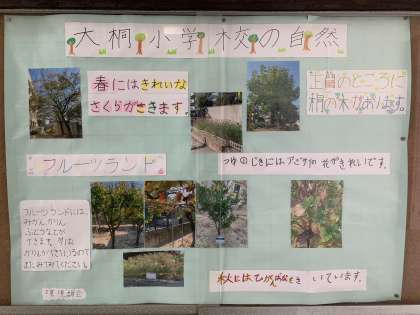 大桐小学校の自然
春にはきれいな
さくらがさきます。
正門のところに
桐の木があります。
フルーツランド
つゆのじきにはアジサイがきれいです。
フルーツランドには、
みかん、かりん、
ぶどうなどが
できます。冬は
かりんが
ので
みてください。
秋にはひがんばなもさいています。
環境委員会